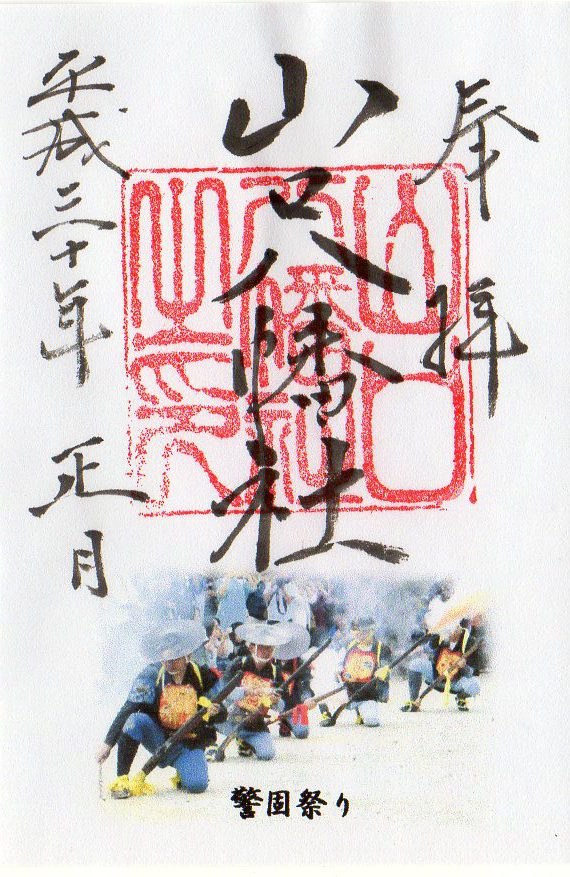 奉拝
山口八幡社
山口八幡社之印
平成三十年 正月
警固祭り